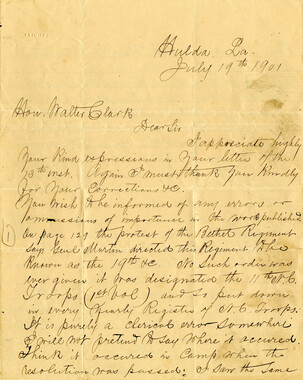 Hulda Pa.
July 19th 1901
Hon. Walter Clark
Dear Sir
I apposciate highly
Your Kind expressions in Your letter of the
13th inst. Again I must thank You Kindly
for Your Corrections &c.
You wish to be informed of any errors or
ommissions of importance in the work published
1) On page 129 the protest of the Bethel Regiment
Says Genl Martin directed this Regiment to be
Known as the 19th &c No Such order was
ever given it was designated the 11th N.C.
Troops (1st Vol) and so put down
in every Yearly Register of N.C. Troops.
It is purely a Clerical erro Somewhere
I will not pretend to Say where it occured.
I think it occured in Camp when the
resolution was passed: I saw the Same